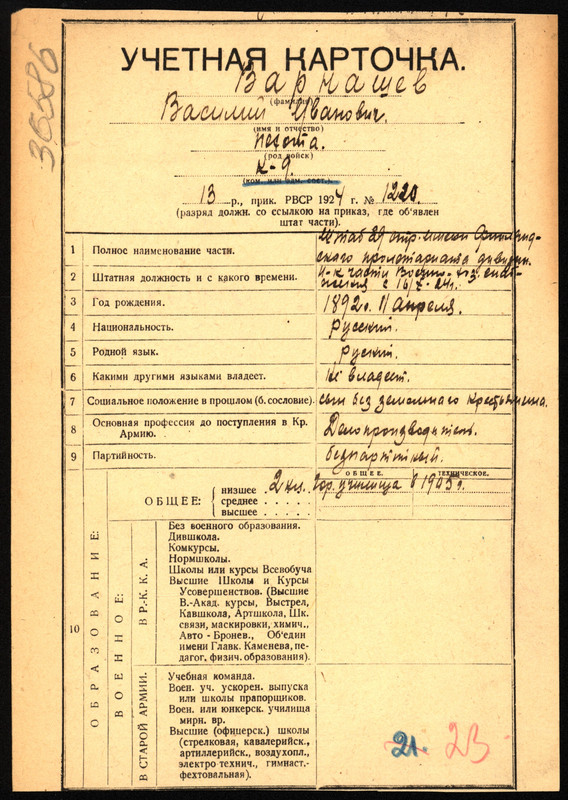 36686
УЧЕТНАЯ КАРТОЧКА.
Варнашев
(фамилия)
Василий Иванович.
(имя и отчество)
пехота.
(род войск)
К-9.
(ком. или адм. сост.).
13 -р., прик. РВСР 1924 г. № 1220
(разряд должн. со ссылкою на приказ, где об'явлен
штат части).
1 Полное наименование части. Штаб 29 отр.
ского пролетариата дивизии.
2 Штатная должность и с какого времени. Н-к части
с 16/X-24г.
3 Год рождения. 1892г. 11 Апреля.
4 Национальность. Русский.
5 Родной язык. Русский.
6 Какими другими языками владеет. Не владеет.
7 Социальное положение в прошлом (б. сословие). сын без земельного крестьянина.
8 Основная профессия до поступления в Кр.
Армию. Делопроизводитель.
9 Партийность. беспартийный.
ОБЩЕЕ. ТЕХНИЧЕСКОЕ.
10 ОБРАЗОВАНИЕ:
ОБЩЕЕ: низшее . 2 кл. Гор. училища в 1905г.
среднее . . . .
высшее . . . .
ВОЕННОЕ:
В Р.-К. К. А.
Без военного образования.
Дившкола.
Комкурсы.
Нормшколы.
Школы или курсы Всевобуча
Высшие Школы и Курсы
Усовершенствов. (Высшие
В.-Акад. курсы, Выстрел,
Кавшкола, Артшкола, Шк.
связи, маскировки, химич.,
Авто - Бронев., Об'един
имени Главк. Каменева, пе-
дагог. физич. образования).
В СТАРОЙ АРМИИ.
Учебная команда.
Воен. уч. ускорен. выпуска
или школы прапорщиков.
Воен. или юнкерск. училища
мирн. вр.
Высшие (офицерск.) школы
(стрелковая, кавалерийск.,
артиллерийск., воздухопл.,
электро-технич., гимнаст.-
фехтовальная).
21. 23